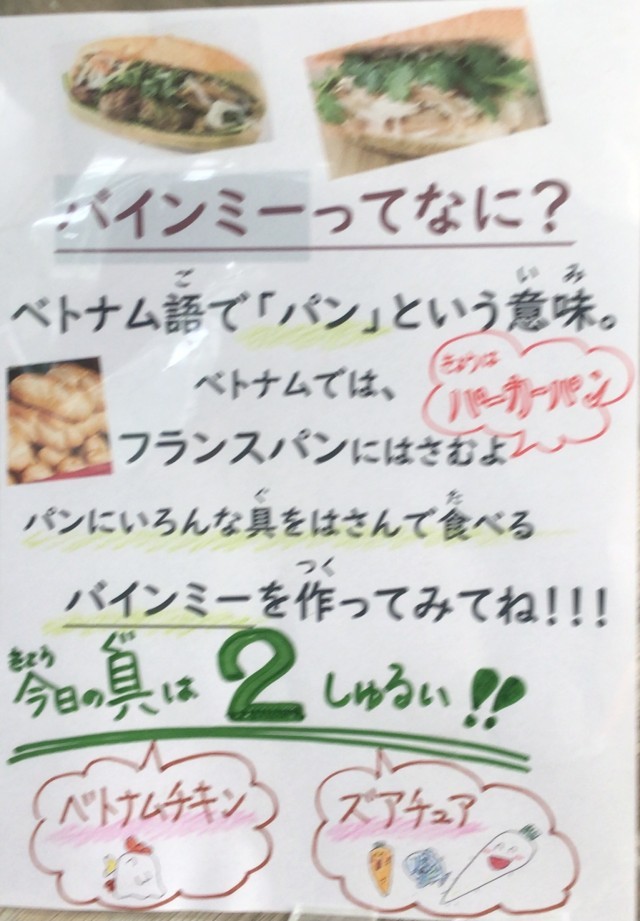 バインミーってなに？
ベトナム語で「パン」という意味。
ご
いみ
ベトナムでは、
きょうは
バーガーパン
フランスパンにはさむよ
パンにいろんな具をはさんで食べる
ぐ
た
バインミーを作ってみてね!!!
つく
今日の具は2しゅるい!!
きょう
ぐ
ベトナムチキン
ズアチュア